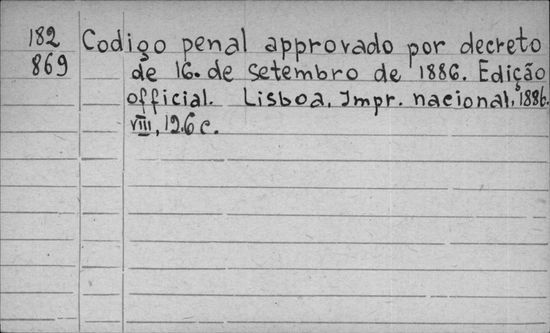 182 Codigo penal approvado por decreto
869 de 16. de setembro de 1886. Edição
official. Lisboa, Impr. nacional, 1886.
VIII, 126 c.